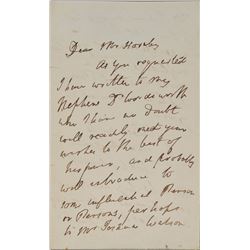 Dear Mr Hornby
As you requested
I have written to my
Nephew Dr Wordsworth
who I have no doubt
will readily meet your
wishes to the best of
his power, and probably
will introduce to
some influential Person
or Persons, perhaps
to Mr Joshua Watson